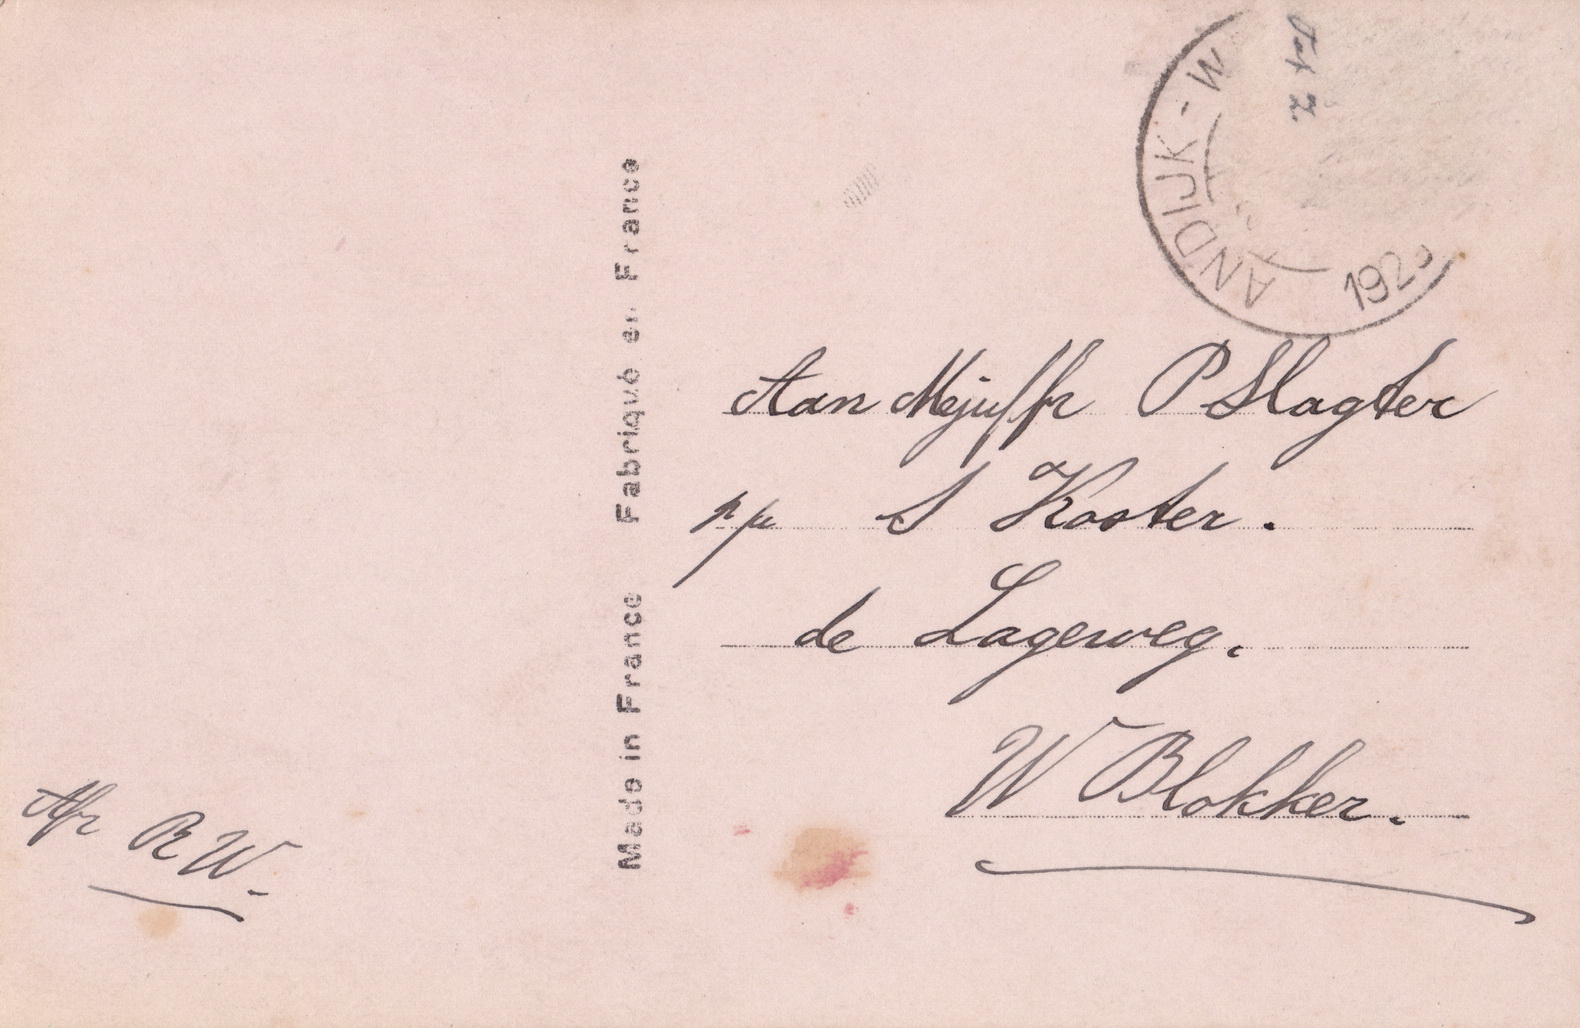 ANDIJK - W
192
Aan Mejuffr P Slagter
S Koster.
de Lageweg.
W Blokker.
Made in France Fabriqué en France
Afz R W.